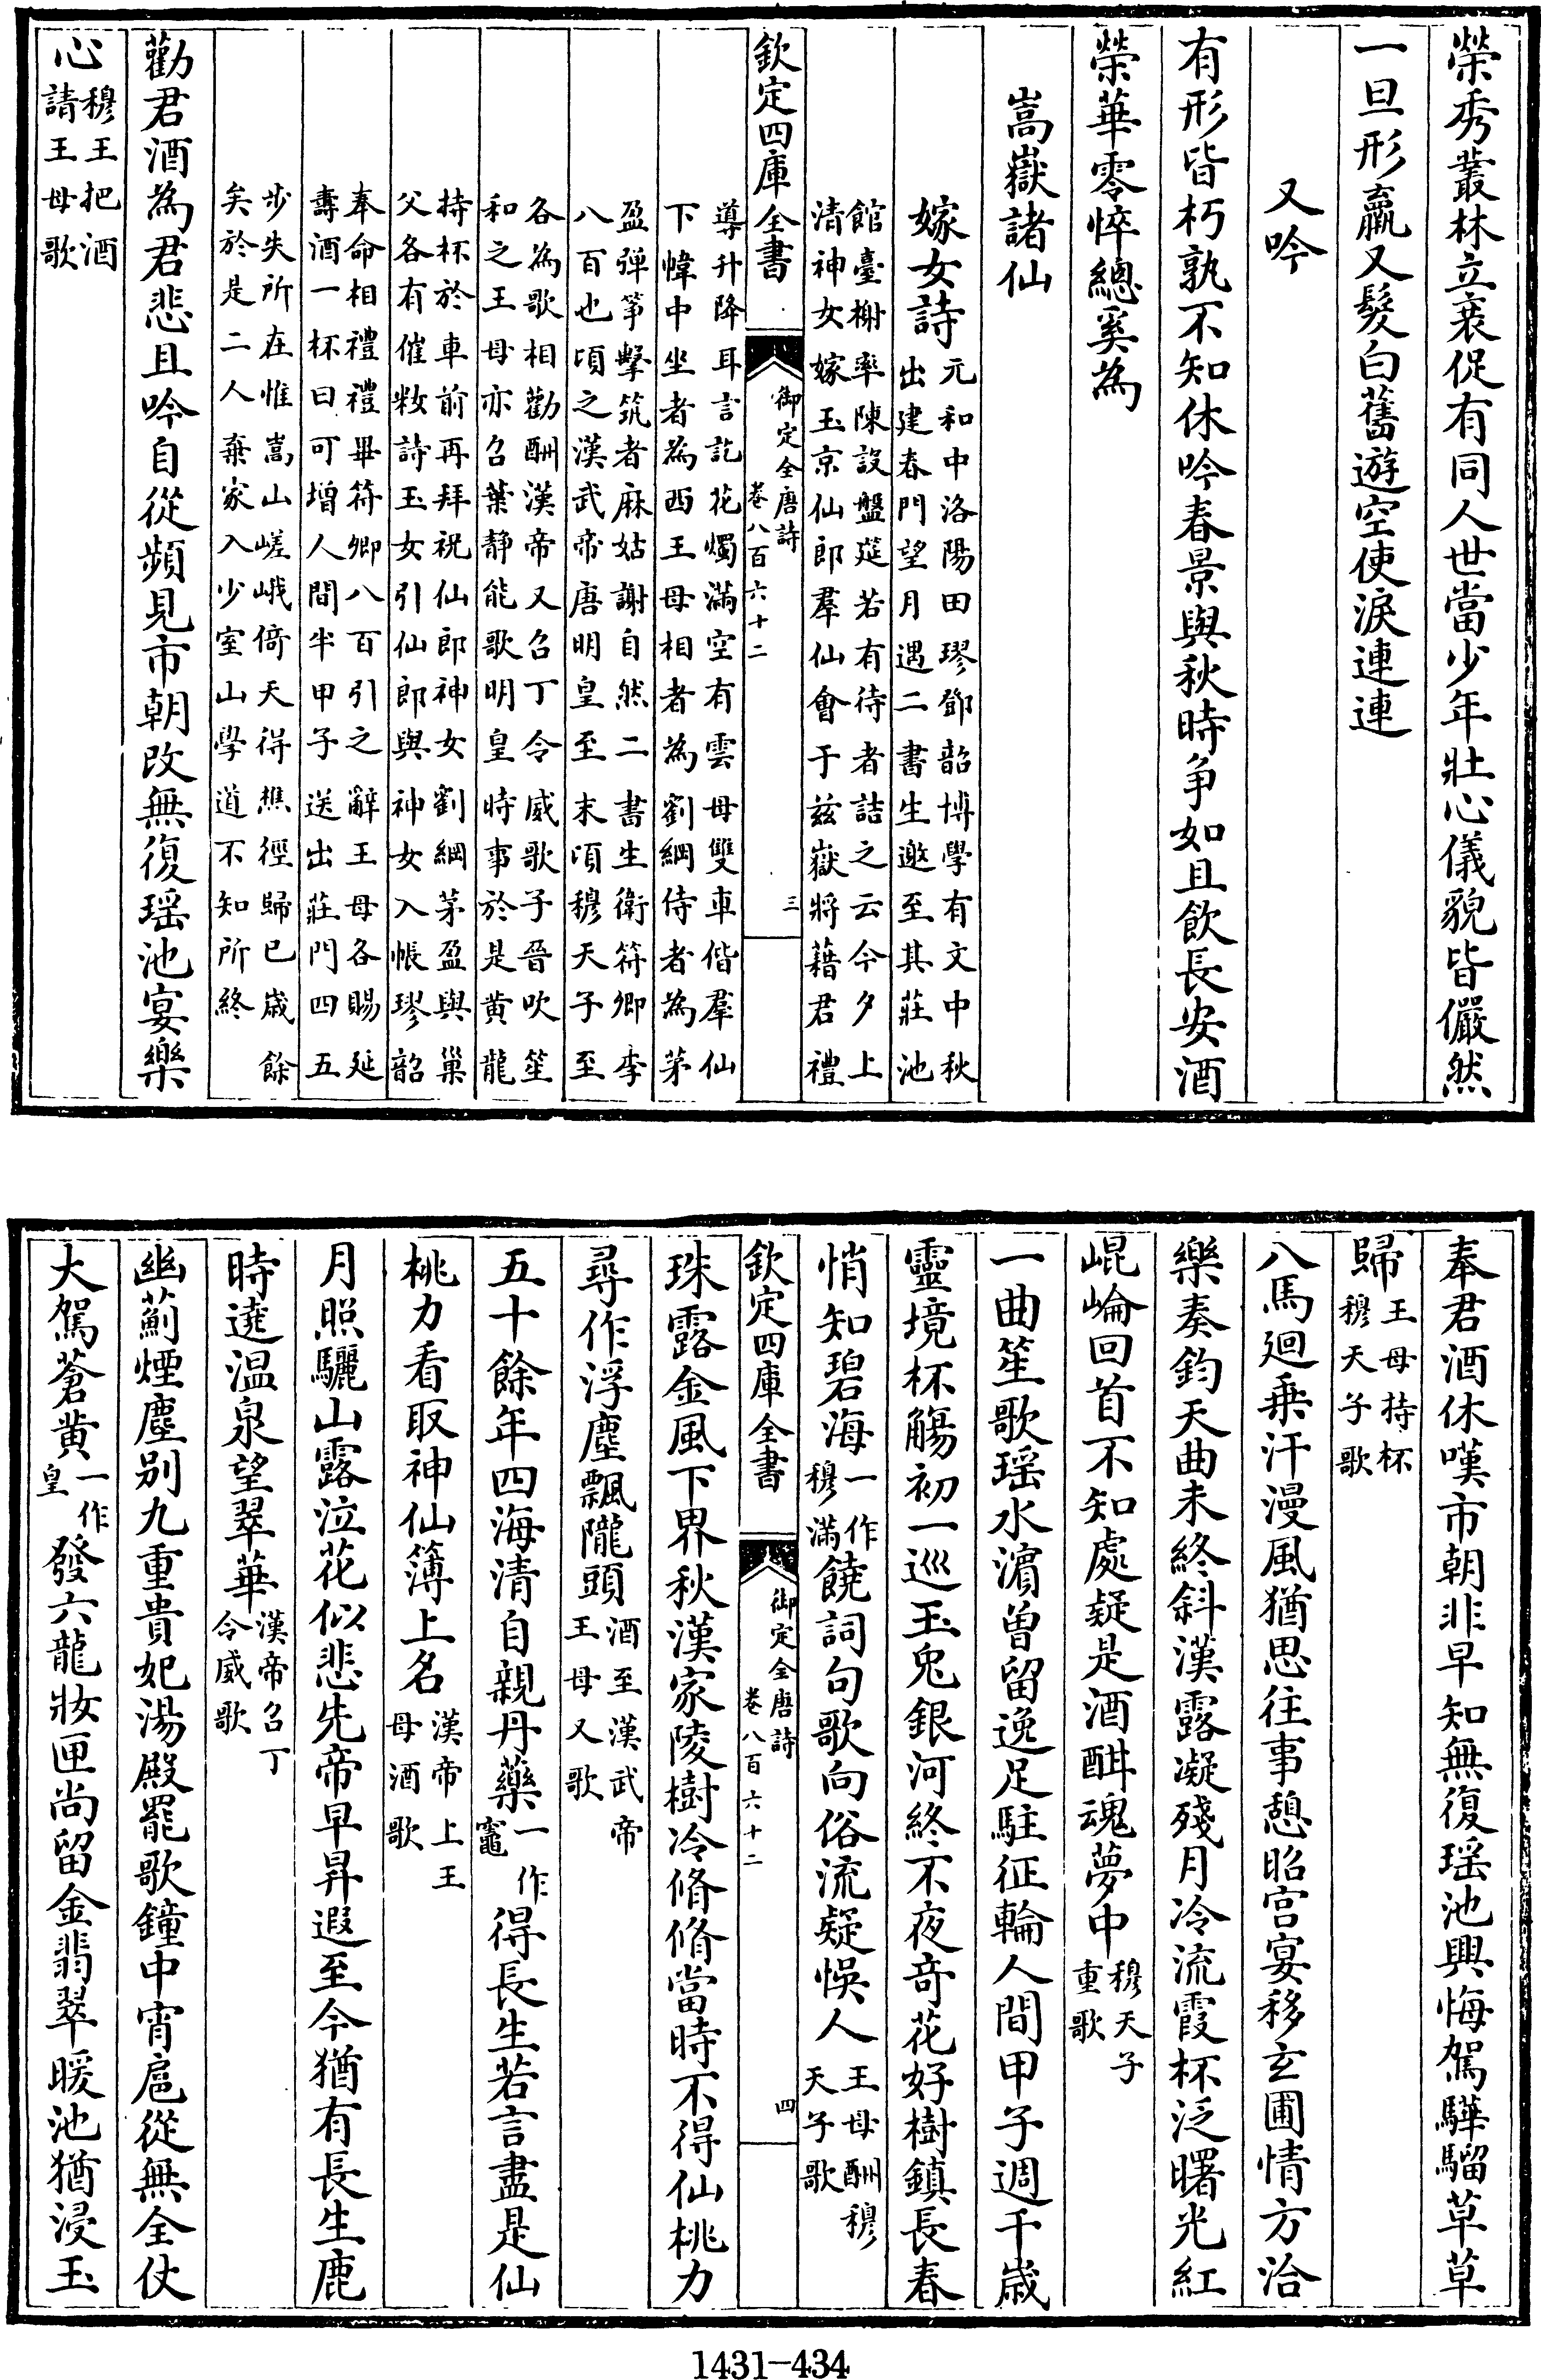 榮秀叢林立衰促有同人世當少年壯心儀貌皆儼然
一旦形羸又髮白舊遊空使淚連連
又吟
有形皆朽孰不知休吟春景與秋時争如且飲長安酒
榮華零悴總奚為
嵩嶽諸仙
嫁女詩元和中洛陽田璆鄧韶博學有文中秋
出建春門望月遇二書生邀至其莊池
館臺榭率陳設盤筵若有待者詰之云今夕上
清神女嫁玉京仙郎羣仙會于兹嶽將藉君禮
欽定四庫全書
御定全唐詩
卷八百六十二
三
導升降耳言訖花燭滿空有雲母雙車偕羣仙
下幃中坐者為西王母相者為劉綱侍者為茅
盈彈筝擊筑者麻姑謝自然二書生衛符卿李
八百也頃之漢武帝唐明皇至末頃穆天子至
各為歌相勸酬漢帝又召丁令威歌子晉吹笙
和之王母亦召葉静能歌明皇時事於是黄龍
持杯於車前再拜祝仙郎神女劉綱茅盈與巢
父各有催粧詩玉女引仙郎與神女入帳璆韶
奉命相禮禮畢符卿八百引之辭王母各賜延
壽酒一杯曰可增人間半甲子送出莊門四五
步失所在惟嵩山嵯峨倚天得樵徑歸已歲餘
矣於是二人棄家入少室山學道不知所終
勸君酒為君悲且吟自從頻見市朝改無復瑶池宴樂
心穆王把酒
請王母歌
奉君酒休嘆市朝非早知無復瑶池興悔駕驊騮草草
歸王母持杯
穆天子歌
八馬迴乗汗漫風猶思往事憩昭宫宴移玄圃情方洽
樂奏鈞天曲未終斜漢露凝殘月冷流霞杯泛曙光紅
崐崘回首不知處疑是酒酣魂夢中穆天子
重歌
一曲笙歌瑶水濵曽留逸足駐征輪人間甲子週千歲
靈境杯觴初一巡玉兎銀河終不夜奇花好樹鎮長春
悄知碧海一作
穆滿饒詞句歌向俗流疑悞人王母酬穆
天子歌
欽定四庫全書
御定全唐詩
卷八百六十二
四
珠露金風下界秋漢家陵樹冷脩脩當時不得仙桃力
尋作浮塵飄隴頭酒至漢武帝
王母又歌
五十餘年四海清自親丹藥一作
竈得長生若言盡是仙
桃力看取神仙簿上名漢帝上王
母酒歌
月照驪山露泣花似悲先帝早昇遐至今猶有長生鹿
時遶温泉望翠華漢帝召丁
令威歌
幽薊煙塵别九重貴妃湯殿罷歌鐘中宵扈從無全仗
大駕蒼黄一作
皇發六龍妝匣尚留金翡翠暖池猶浸玉
1431-434